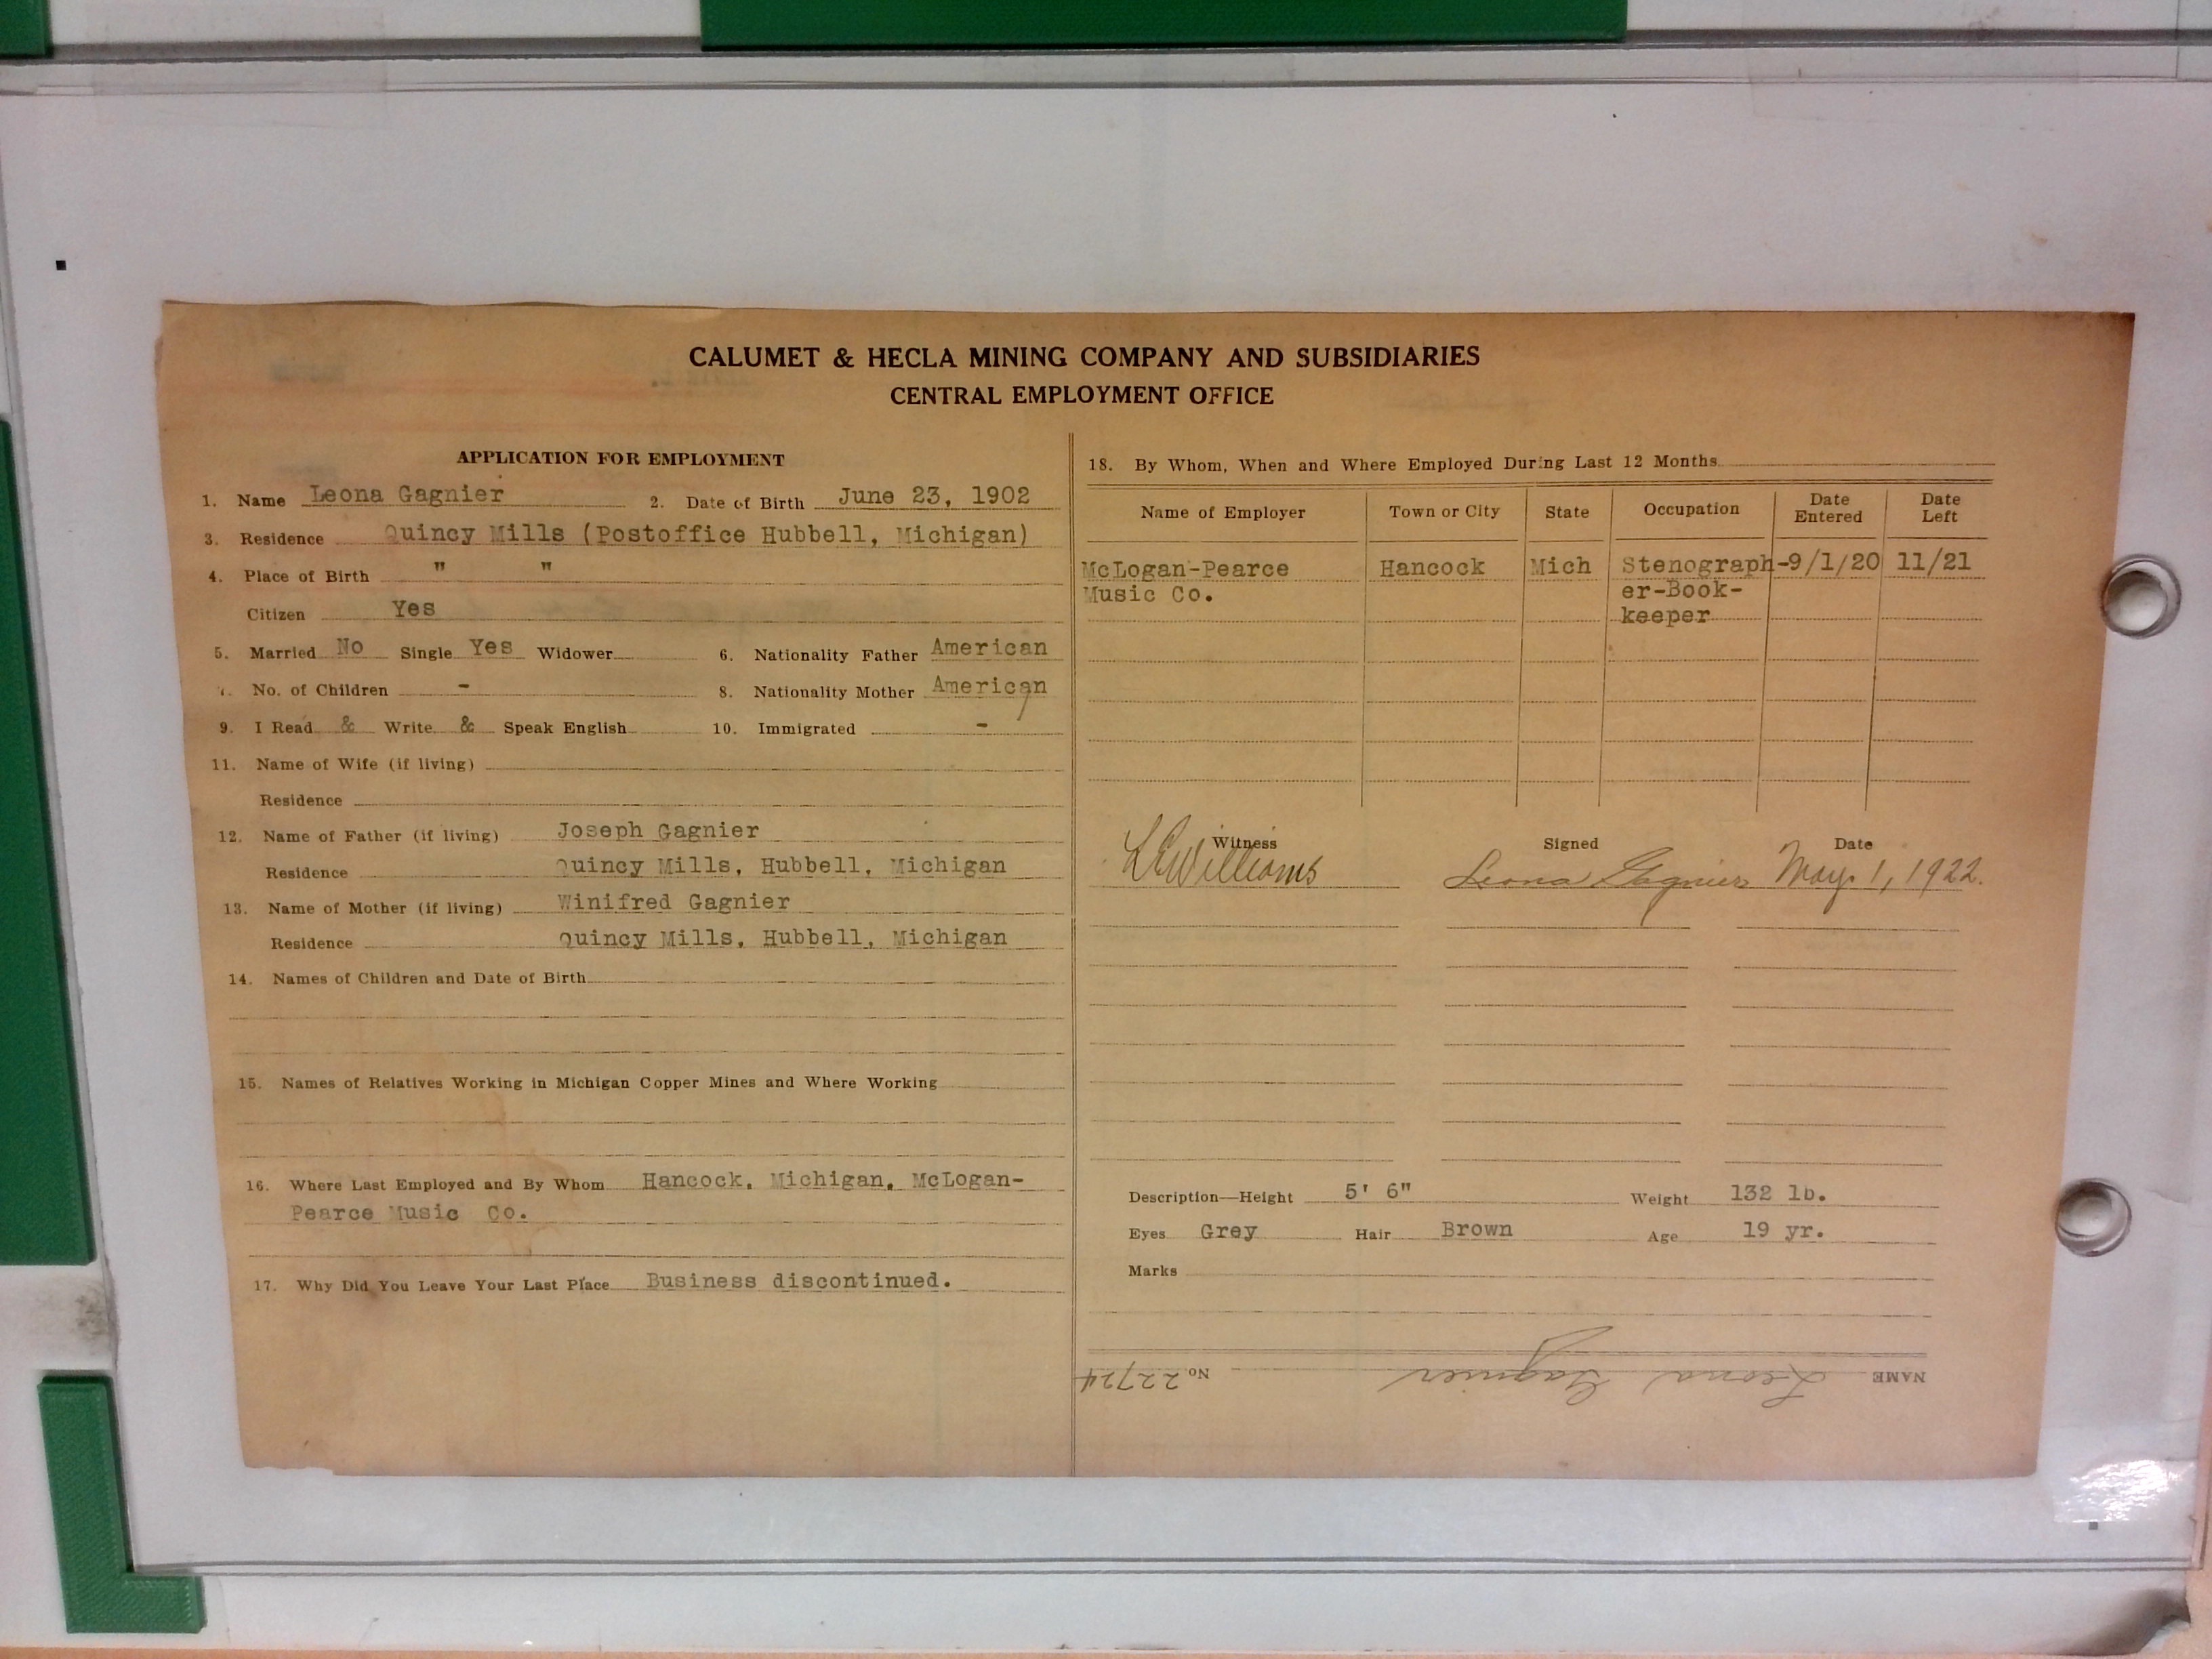 CALUMET & HECLA MINING COMPANY AND SUBSIDIARIES
CENTRAL EMPLOYMENT OFFICE
APPLICATION FOR EMPLOYMENT
1. Name Leona Gagnier 2. Date of Birth June 23, 1902
3. Residence Quincy Mills (Postoffice Hubbell, Michigan)
4. Place of Birth " "
Citizen Yes
5. Married No Single Yes Widower 6. Nationality Father American
7. No. of Children - 8. Nationality Mother American
9. I Read & Write & Speak English 10. Immigrated -
11. Name of Wife (if living)
Residence
12. Name of Father (if living) Joseph Gagnier
Residence Quincy Mills, Hubbell, Michigan
13. Name of Mother (if living) Winifred Gagnier
Residence Quincy Mills, Hubbell, Michigan
14. Names of Children and Date of Birth
15. Names of Relatives Working in Michigan Copper Mines and Where Working
16. Where Last Employed and By Whom Hancock, Michigan, McLogan-
Pearce Music Co.
17. Why Did You Leave Your Last Place Business discontinued.
18. By Whom, When and Where Employed During Last 12 Months
Name of Employer Town or City State Occupation Date Entered Date Left
McLogan-Pearce Hancock Mich Stenograph- 9/1/20 11/21
Music Co. er-Book-
keeper
Witness Signed Date
L C Williams Leona Gagnier May 1, 1922.
Description—Height 5' 6" Weight 132 lb.
Eyes Grey Hair Brown Age 19 yr.
Marks
NAME Leona Gagnier No. 22724